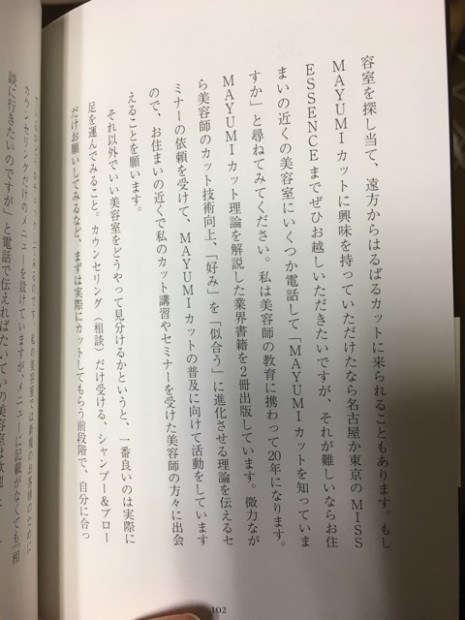 容室を探し当て、遠方からはるばるカットに来られることもあります。もし
MAYUMIカットに興味を持っていただけたなら名古屋か東京のMISS
ESSENCEまでぜひお越しいただきたいですが、それが難しいならお住
まいの近くの美容室にいくつか電話して「MAYUMIカットを知っていま
すか」と尋ねてみてください。私は美容師の教育に携わって20年になります。
MAYUMIカット理論を解説した業界書籍を2冊出版しています。微力なが
ら美容師のカット技術向上、「好み」を「似合う」に進化させる理論を伝えるセ
ミナーの依頼を受けて、MAYUMIカットの普及に向けて活動をしています
ので、お住まいの近くで私のカット講習やセミナーを受けた美容師の方々に出会
えることを願います。
それ以外でいい美容室をどうやって見分けるかというと、一番良いのは実際に
足を運んでみること。カウンセリング（相談）だけ受ける、シャンプー&ブロー
だけお願いしてみるなど、まずは実際にカットしてもらう前段階で、自分に合っ
のです。私の美容室では新規のお客様のために
カウンセリングだけのメニューを設けていますが、メニューに記載がなくても「相
談に行きたいのですが」と電話で伝えればたいていの美容室は歓迎
102